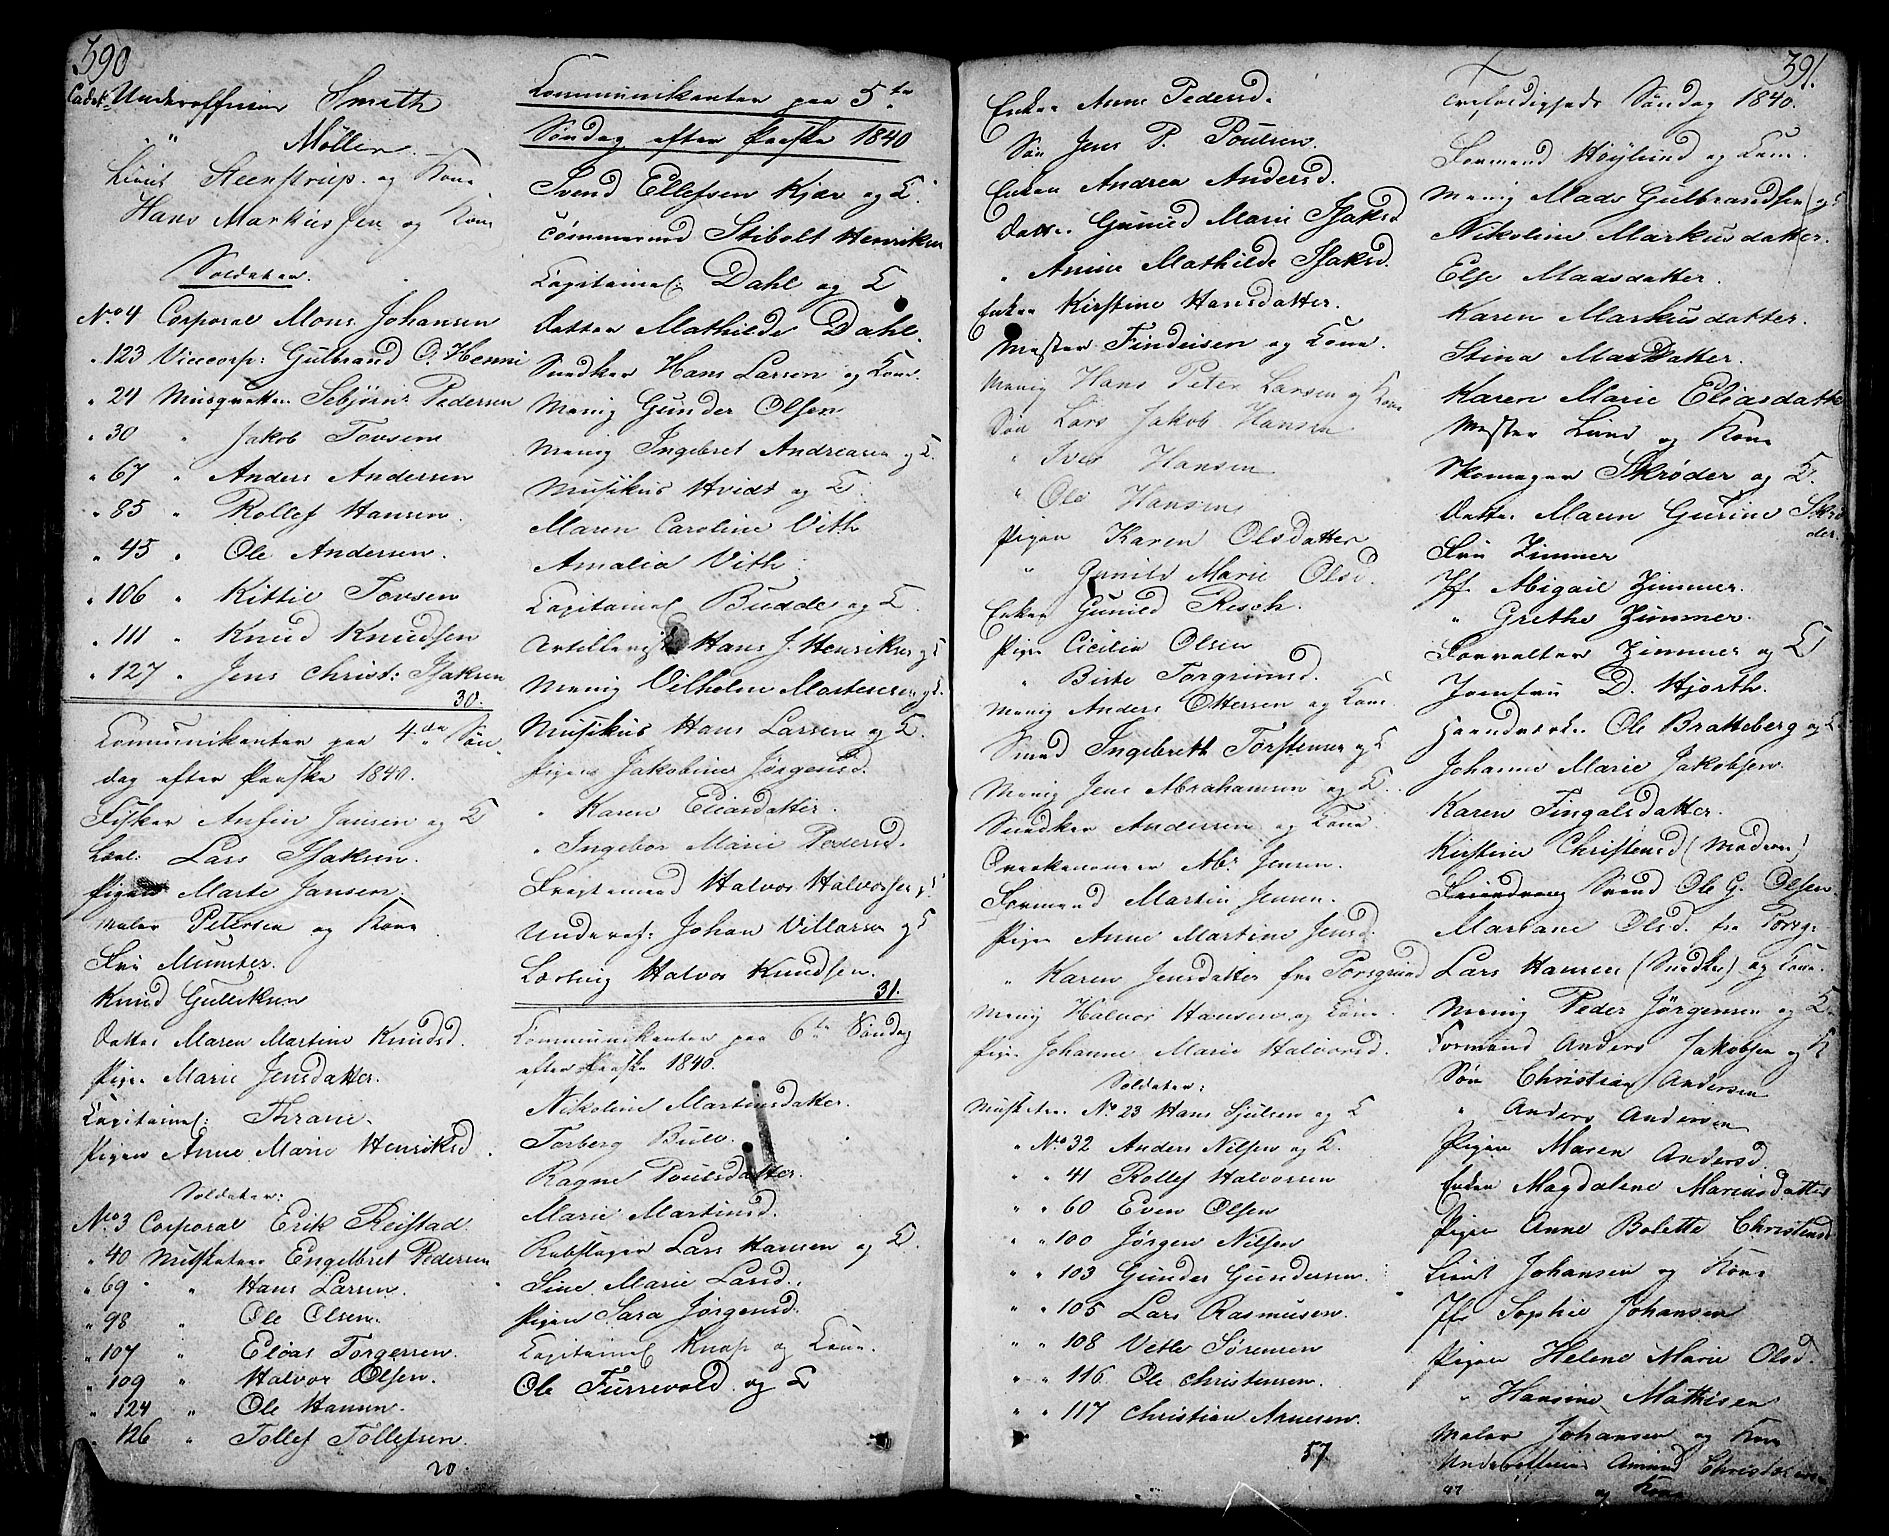 390
Cadet Underofficier Smith
" Møller.
Lieut Steenstrup. og Kone
Hans Markussen og Kone
Soldater.
No. 4 Corporal Mons Johansen
" 123 Vicecorp: Gulbrand O. Henni
" 24 Musqvetter Sebjørn Pedersen
" 30 " Jakob Tovsen
" 67 " Anders Andersen
" 85 " Rollef Hansen.
" 45 " Ole Andersen.
" 106 " Kittil Tovsen
" 111 " Knud Knudsen
" 127 " Jens Christ: Isaksen
30.
Communikanter paa 4de Søn-
dag efter Paaske 1840.
Fysker Anfin Jansen og K
Lærl: Lars Isaksen.
Pigen Marte Jansen.
Maler Petersen og Kone
Fru Munster.
Knud Gulliksen
Datter Maren Martine Knudsd.
Pigen Marie Jensdatter.
Capitainel: Thrane.
Pigen Anne Marie Henriksd.
Soldater:
No. 3 Corporal Erik Reistad.
" 40 Musketeer Engelbret Pedersen
" 69 " Hans Larsen.
" 98 " Ole Olsen.
" 107 " Elias Torgersen.
" 109 " Halvor Olsen.
" 124 " Ole Hansen.
" 126 " Tollef Tollefsen.
20.
Communikanter paa 5te
Søndag efter Paaske 1840
Svend Ellefsen Kjær og K.
Tømmermd Stibolt Henriksen
Capitainel: Dahl og K
Datter Mathilde Dahl.
Snedker Hans Larsen og Kone.
Menig Gunder Olsen
Menig Ingebret Andreasen og K.
Musikus Hvidt og K.
Maren Caroline Vith
Amalia Vith.
Capitainel Budde og K.
Artillerist Hans J. Henriksen og K
Menig Vilhelm Mortensen og K.
Musikus Hans Larsen og K.
Pigen Jakobine Jørgensd.
" Karen Eliasdatter.
" Ingebor Marie Pedersd.
Fragtemand Halvor Halvorsen og K
Underof: Johan Villarsen og K
Lærling Halvor Knudsen.
31.
Communikanter paa 6te Søndag
efter Paaske 1840.
Nikoline Martinsdatter.
Torberg Bull.
Ragne Poulsdatter.
Marie Martinsd.
Rebslager Lars Hansen og K.
Sine Marie Larsd.
Pigen Sara Jørgensd.
Capitainel Knap og Kone.
Ole Furrevold og K
391.
Enken Anne Pedersd.
Søn Jens P. Poulsen.
Enken Andrea Andersd.
Datter Gunild Marie Isaksd
" Anine Mathilde Isaksd.
Enken Kirstine Hansdatter.
Mester Findeisen og Kone.
Menig Hans Peter Larsen og Kone
Søn Lars Jakob Hansen
" Iver Hansen
" Ole Hansen
Pigen Karen Olsdatter
" Gunild Marie Olsd.
Enken Gunild Resch.
Pigen Cicilia Olsen
" Birte Torgrimsd.
Menig Anders Ottersen og Kone
Smed Ingebreth Torstensen og K
Menig Jens Abrahamsen og K.
Snedker Andersen og Kone.
Overkanoneer Ab. Jensen.
Formand Martin Jensen.
Pigen Anne Martine Jensd.
" Karen Jensdatter fra Porsgrund
Menig Halvor Hansen og Kone
Pigen Johanne Marie Halvorsd.
Soldater:
Musketeer No. 23 Hans Gjulsen og K
" No. 32 Anders Nilsen og K.
" " 41 Rollef Halvorsen
" " 60 Even Olsen
" " 100 Jørgen Nilsen
" " 103 Gunder Gundersen.
" " 105 Lars Rasmusen.
" " 108 Vetle Sørensen
" " 116 Ole Christensen.
" " 117 Christian Arnesen.
57.
Trefoldigheds Søndag 1840.
Formand Høylund og Kone.
Menig Mads Gulbrandsen og K
Nikoline Markusdatter.
Else Madsdatter.
Karen Markusdatter.
Stina Madsdatter.
Karen Marie Eliasdatter
Mester Lund og Kone
Skomager Skrøder og K.
Datter Maren Gurine Skrø
der.
Fru Zimmer
Jfr Abigail Zimmer.
" Grethe Zimmer.
Forvalter Zimmer og K
Jomfru D. Hjorth.
Haandverker Ole Bratteberg og K
Johanne Marie Jakobsen.
Karen Fingalsdatter.
Kirstine Christensd (Moderen)
Svend Ole G. Olsen.
Mariane Olsd. fra Porsg.
Lars Hansen (Snedker) og Kone.
Menig Peder Jørgensen og K.
Formand Anders Jakobsen og K
Søn Christian Andersen
" Anders Andersen
Pigen Maren Andersd.
Enken Magdalene Mariusdatter
Pigen Anne Bolette Christensd
Lieut Johansen og Kone
Jfr Sophie Johansen
Pigen Helene Marie Olsd.
" Hansine Mathisen
Maler Johansen og Kone
Underofficier Amund Christensen
47 og Kone